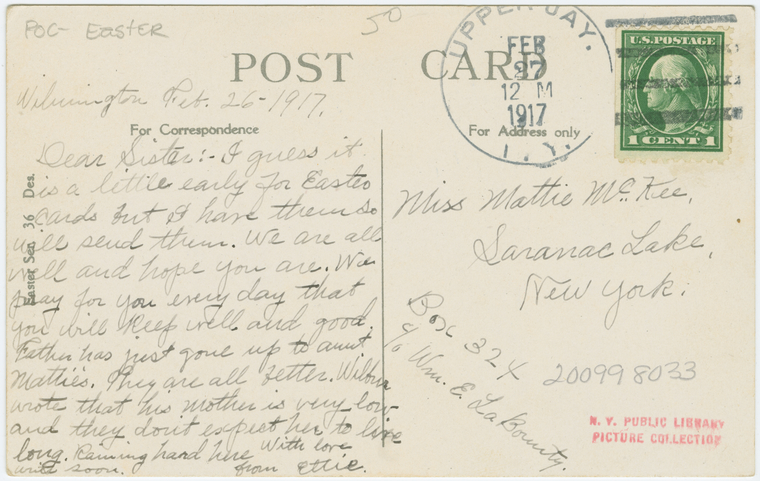 POC- Easter
50
POST CARD
UPPER JAY.
FEB
27
12 M
1917
N. Y.
U.S. POSTAGE
1 CENT 1
Wilmington Feb. 26-1917.
For Correspondence
For Address only
Easter Ser. 36 Des.
Dear Sister:- I guess it
is a little early for Easter
cards but I have them so
will send them. We are all
well and hope you are. We
pray for you every day that
you will keep well and good.
Father has just gone up to aunt
Mattie's. They are all better. Wilbur
wrote that his mother is very low
and they don't expect her to live
long. Raining hard here. With love
write soon. from Ettie.
Miss Mattie McKee,
Saranac Lake,
New York.
Box 324
c/o Wm. E. La Bounty.
200998033
N. Y. PUBLIC LIBRARY
PICTURE COLLECTION